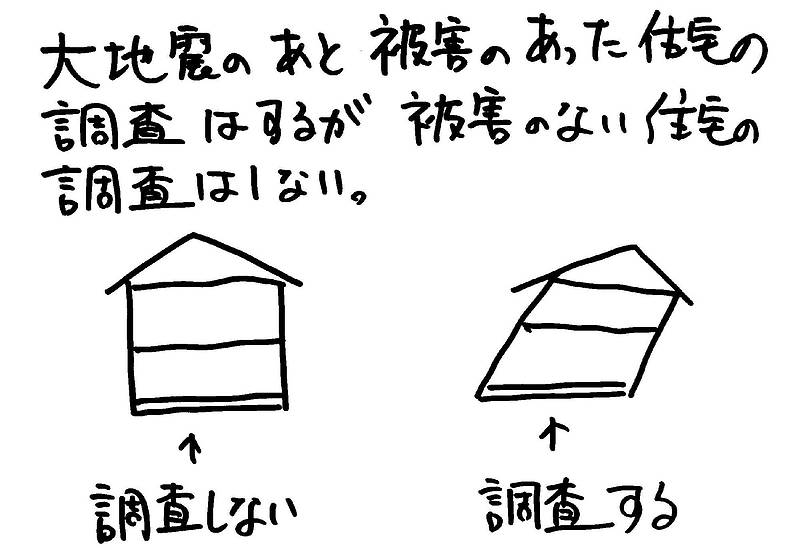 大地震のあと被害のあった住宅の
調査はするが被害のない住宅の
調査はしない。
調査しない
調査する